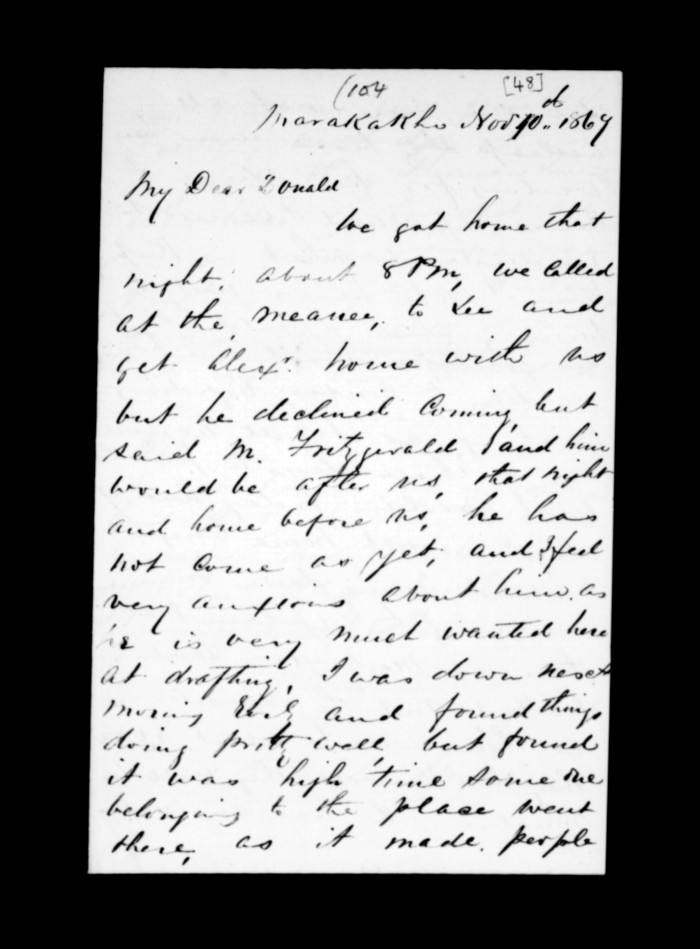 (104 [48]
Marakakho Nov 10th 1869
My Dear Donald
We got home that
night, about 8 Pm, we Called
at the, meanee, to See and
get Alexr. home with us
but he declined Coming, but
said M. Fritzgerald and him
would be after us, that night
and home before us, he has
not Come as yet, and I feel
very anxious about him, as
he is very much wanted here
at drafting, I was down next
moring and found things
doing pritty well, but found
it was high time some one
belonging to the place went
there, as it made. people